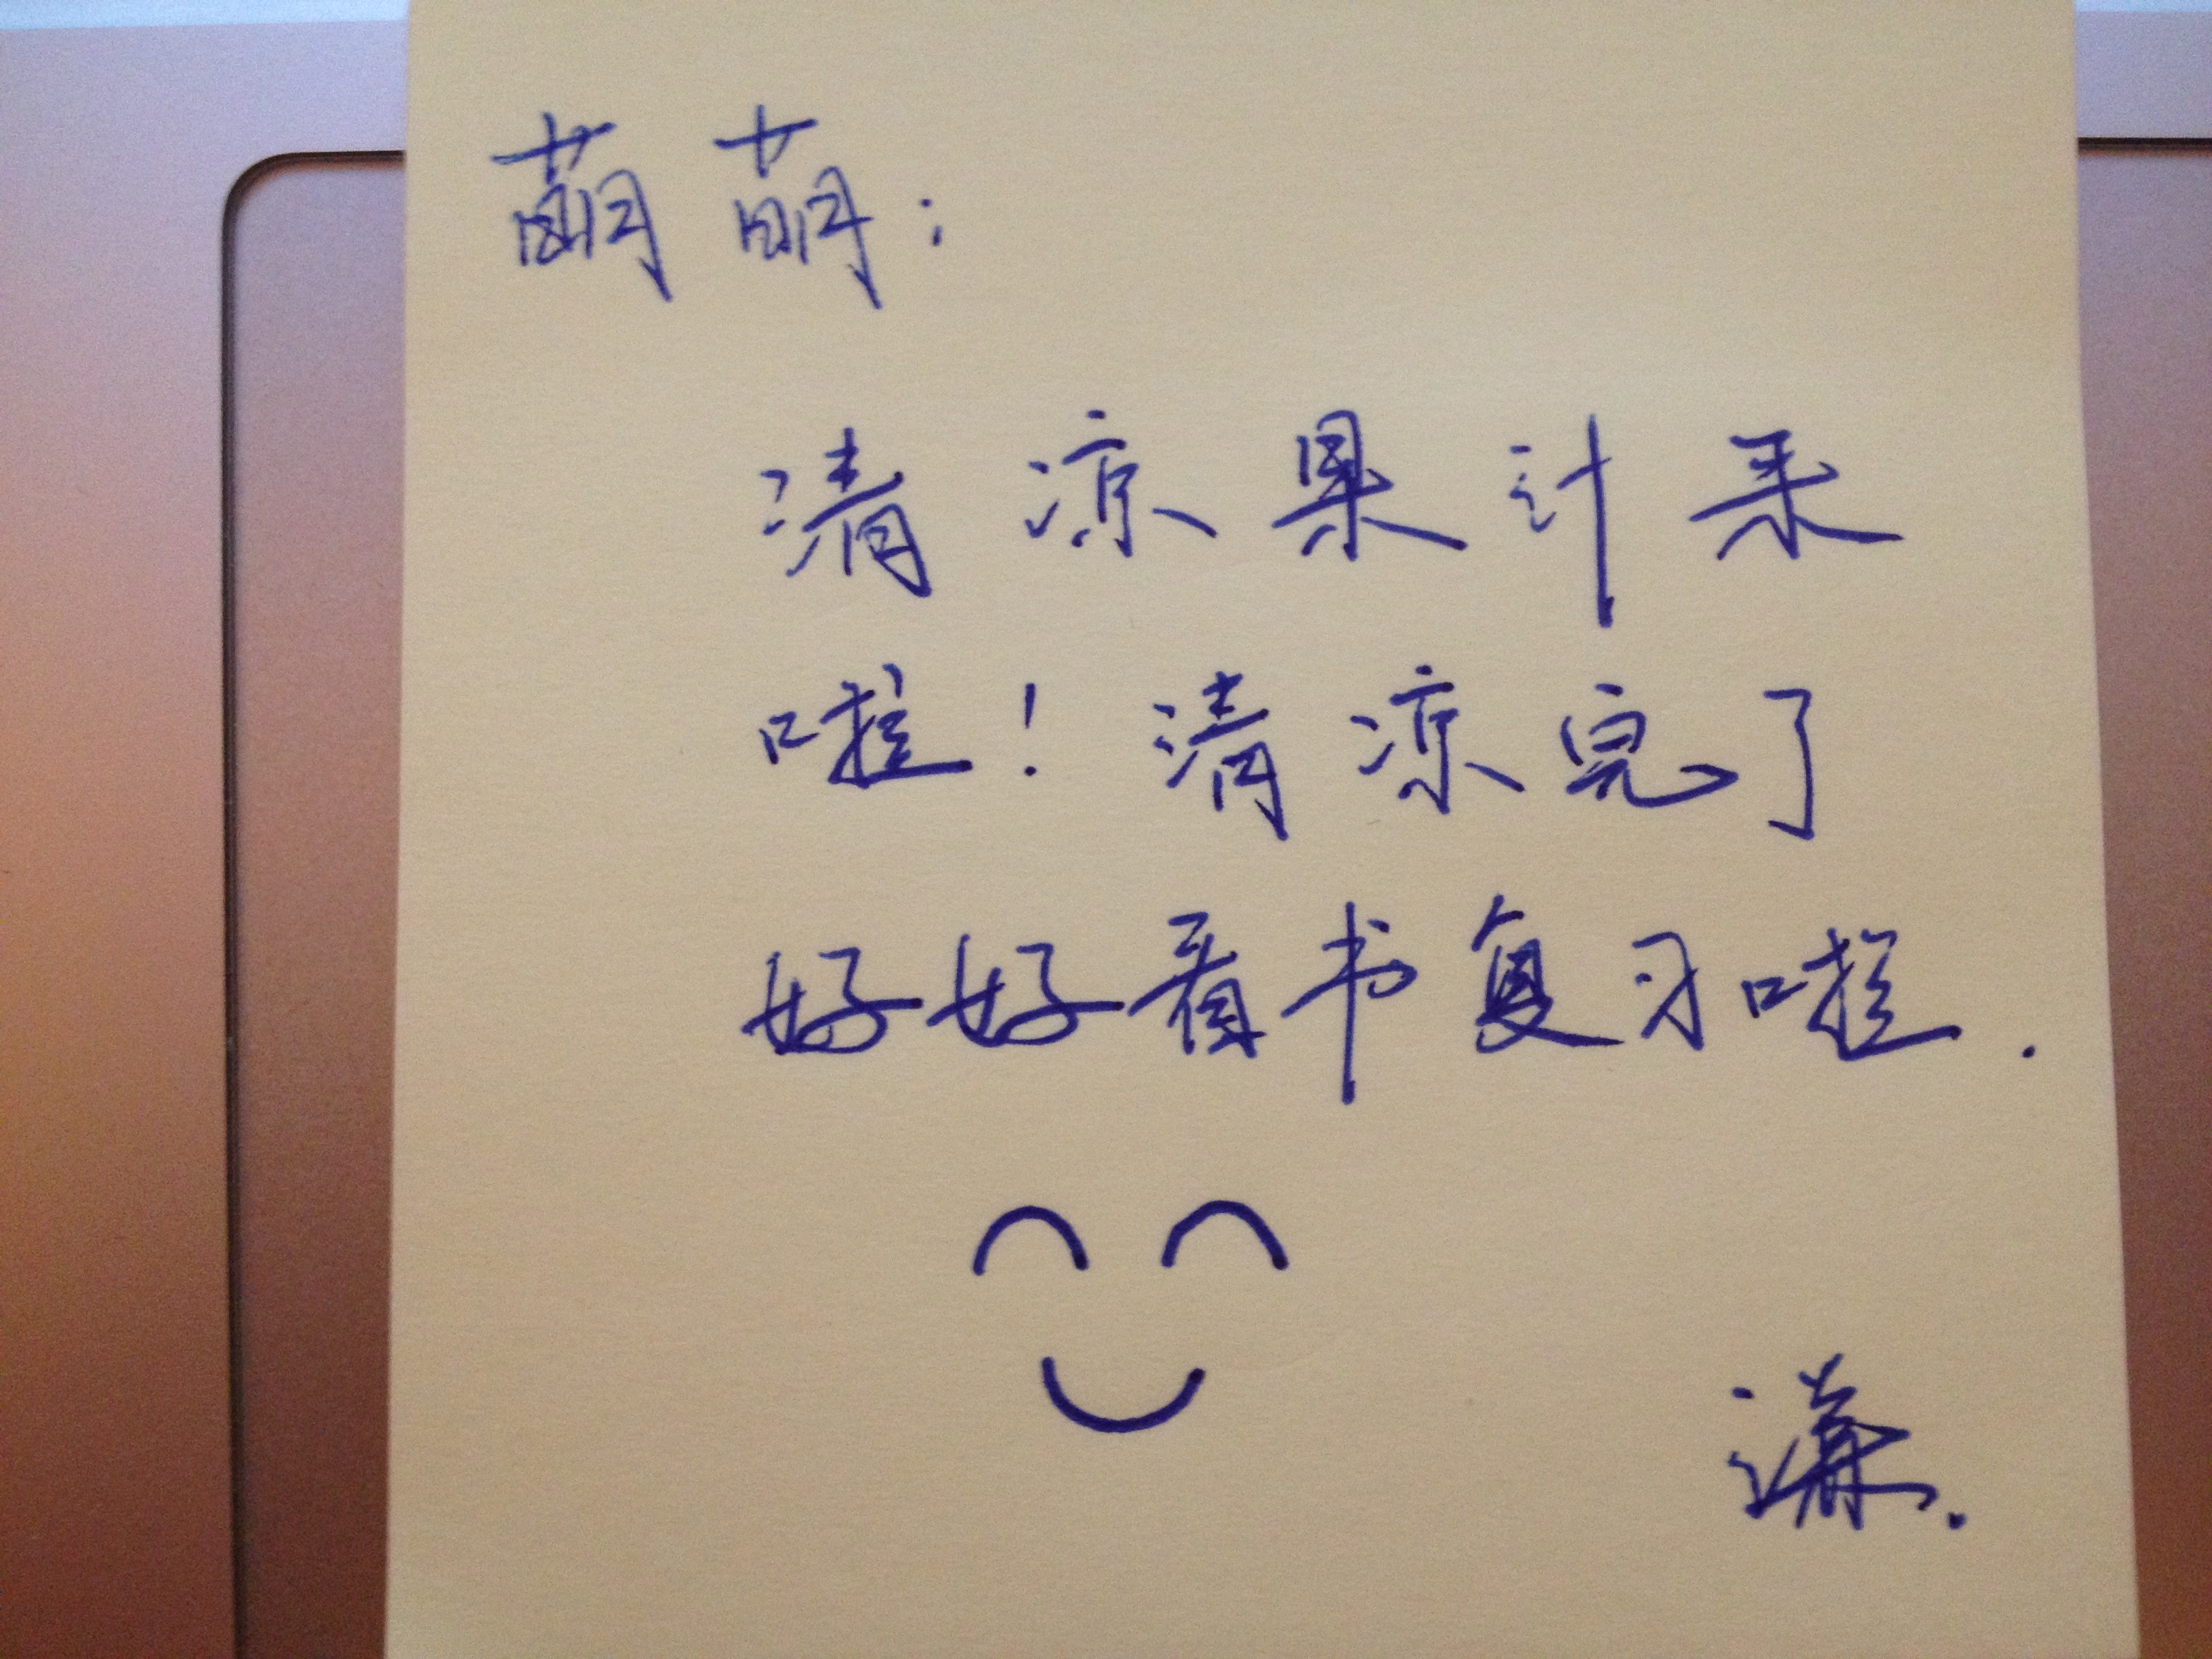 萌萌：
清凉果汁来
啦！清凉完了
好好看书复习啦.